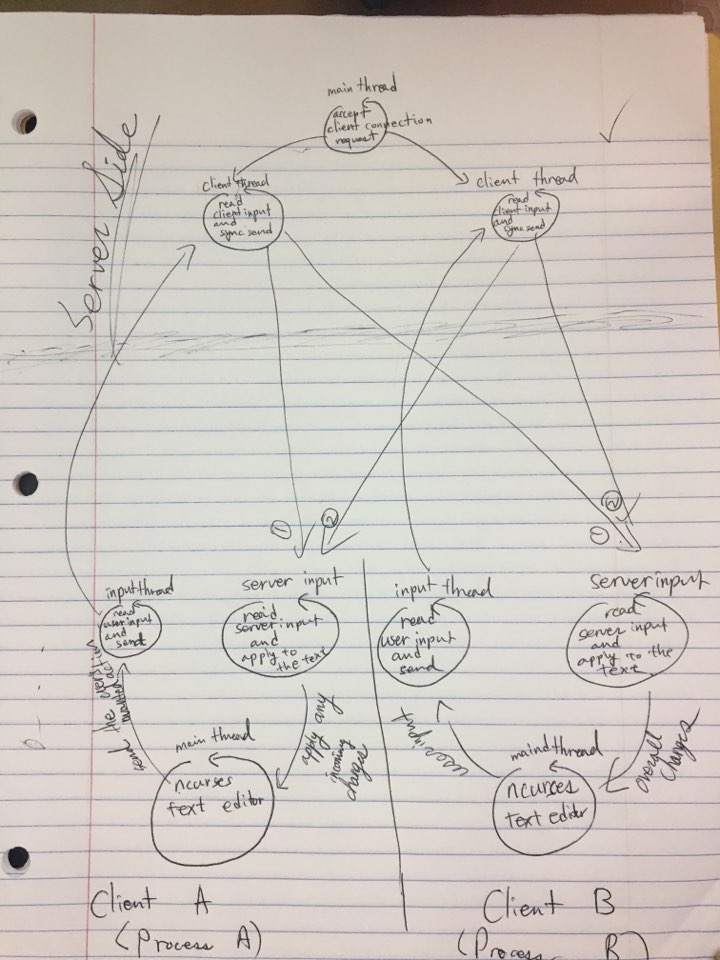 main thread
accept
client connection
request
Server Side
client thread
read
client input
and
sync send
client thread
read
client input
and
sync send
① ②
② ①
input thread
read
user input
and
send
server input
read
server input
and
apply to
the text
input thread
read
user input
and
send
server input
read
server input
and
apply to the
text
send the
apply any
incoming
changes
user input
overall
changes
main thread
ncurses
text editor
maind thread
ncurces
text editor
Client A
(Process A)
Client B
(Process B)